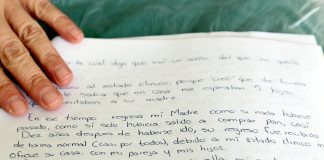 la cual dije que viví un sueño del que no quería
al estado clínico; porque "creó" de forma
sabía que en casa me esperaban 5 hijos
a su madre.
En ese tiempo regresa mi Madre como si nada hubiese
pasado, como si solo hubiera salido a comprar pan; casi
Diez años después de haberse ido, su regreso fue recibido
de forma normal (casi por todos), debido a mi estado clínico me
ofrece su casa, con mi pareja y mis hijos.